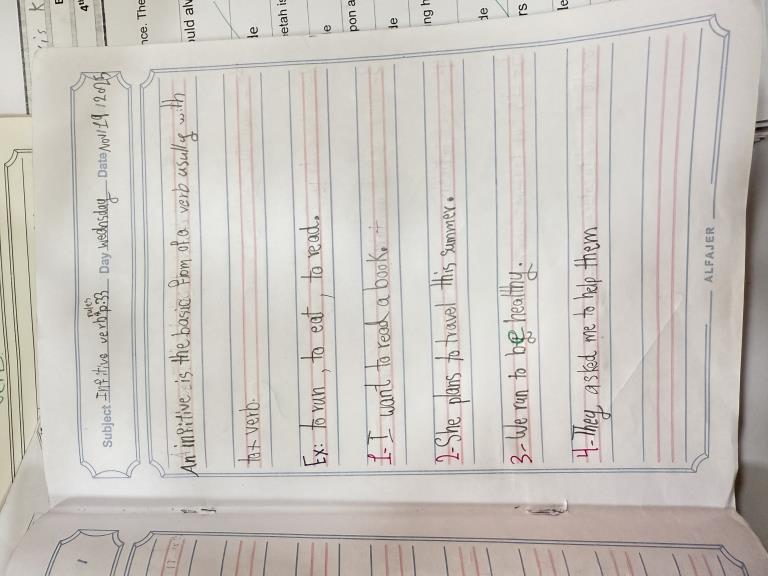 Subject Infitive verb p:33 Day wednsday Date Nov/19/2025
rules
An infitive is the basic from of a verb usully with
to + verb.
Ex: to run, to eat, to read.
1- I want to read a book.
2- She plans to travel this summer.
3- We run to be healthy.
4- They asked me to help them
ALFAJER